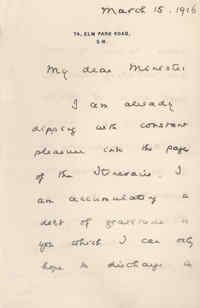 March 15. 1916
74, ELM PARK ROAD,
S.W.
My dear Minister
I am already
dipping with constant
pleasure into the page
of the Itinerary. I
am accumulating a
debt of gratitude to
you which I can only
hope to discharge in